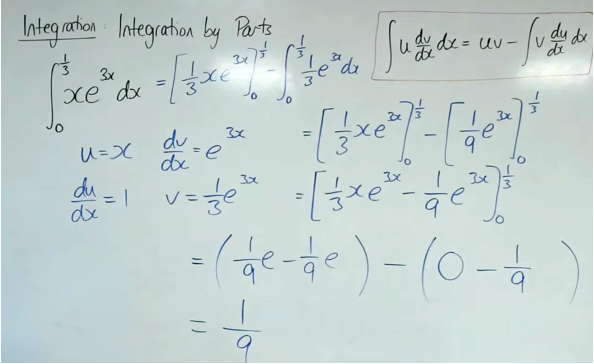 Integration: Integration by Parts
∫u dv/dx dx = uv - ∫v du/dx dx
∫₀^(1/3) xe^(3x) dx = [1/3 xe^(3x)]₀^(1/3) - ∫₀^(1/3) 1/3 e^(3x) dx
u = x dv/dx = e^(3x)
= [1/3 xe^(3x)]₀^(1/3) - [1/9 e^(3x)]₀^(1/3)
du/dx = 1 v = 1/3 e^(3x)
= [1/3 xe^(3x) - 1/9 e^(3x)]₀^(1/3)
= (1/9 e - 1/9 e) - (0 - 1/9)
= 1/9